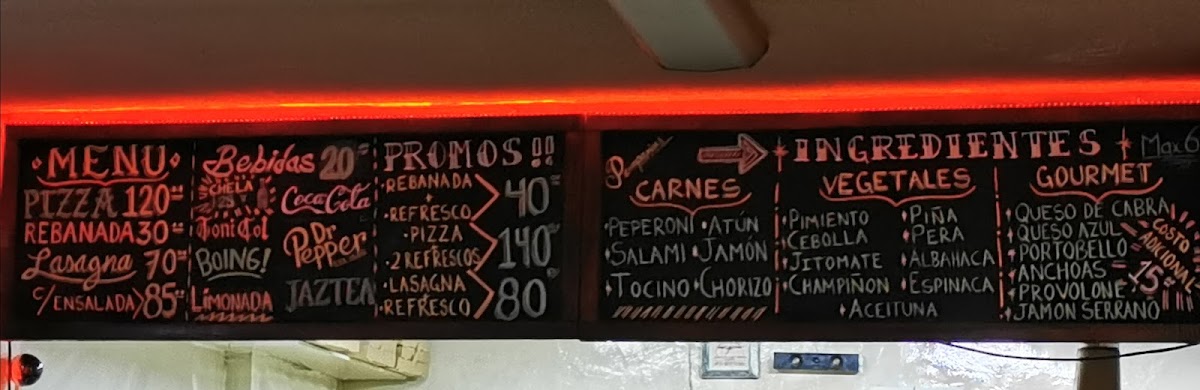 MENU
PIZZA 120
REBANADA 30
Lasagna 70
C/ENSALADA 85
Bebidas 20
CHELA
Coca Cola
Toni Col
Dr Pepper
BOING!
LIMONADA
JAZTEA
PROMOS!!
•REBANADA
+
•REFRESCO
40
•PIZZA
•2 REFRESCOS
140
•LASAGNA
•REFRESCO
80
CARNES
•PEPERONI •ATÚN
•SALAMI •JAMÓN
•TOCINO •CHORIZO
INGREDIENTES
Max 6
VEGETALES
•PIMIENTO
•CEBOLLA
•JITOMATE
•CHAMPIÑON
•PIÑA
•PERA
•ALBAHACA
•ESPINACA
•ACEITUNA
GOURMET
•QUESO DE CABRA
•QUESO AZUL
•PORTOBELLO
•ANCHOAS
•PROVOLONE
•JAMON SERRANO
COSTO
ADICIONAL
15